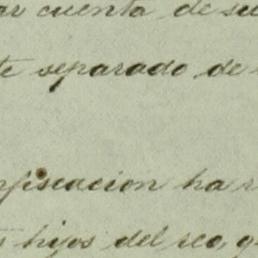 ar cuenta de su
te separado de
nfiscacion ha
hijos del reo, q